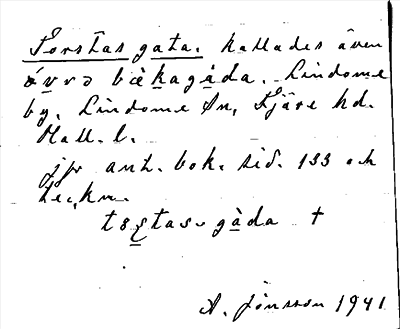 Torstas gata. kallades även
övrə bäkagàda. Lindome
by, Lindome sn, Fjäre hd.
Hall. l.
jfr ant. bok. sid. 133 och
teckn.
tàda †
A. Jönsson 1941